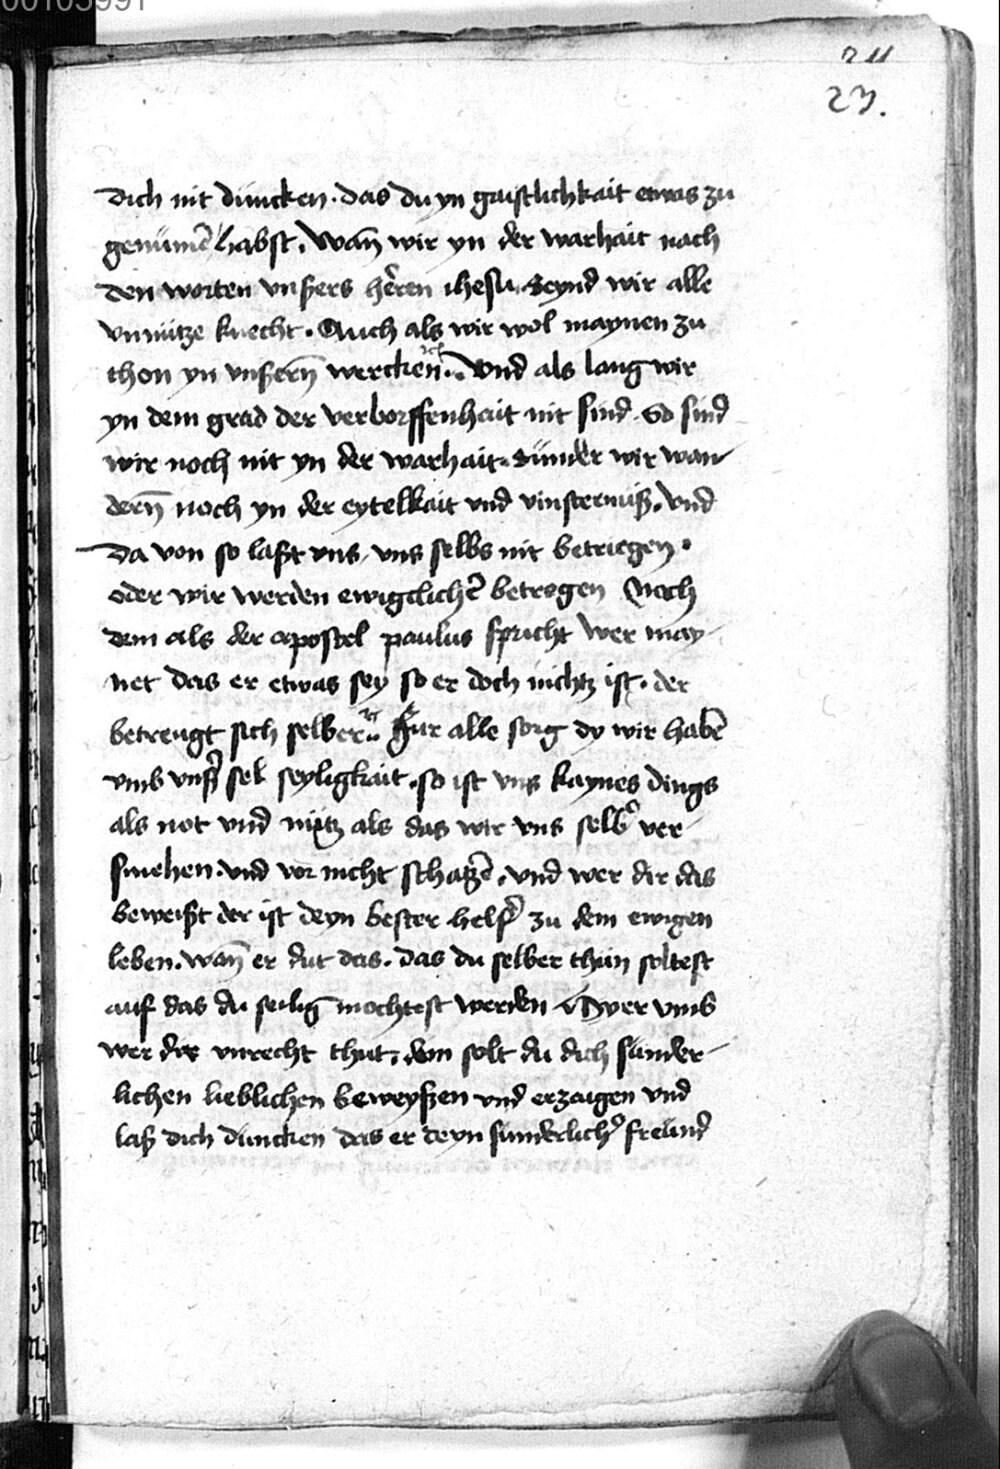 00105991
211
23.
dich nit düncken. das du yn gaistlichkait etwas zu
genümē habst. Wañ wir yn der warhait nach
den worten vnsers hēren ihesu seynd wir alle
vnnütze knecht. Auch als wir wol maynen zu
thon yn vnsern̄ wercken. Vnd als lang wir
yn dem grad der verborffenhait nit sind. So sind
wir noch nit yn der warhait. Sünder wir wan
dern̄ noch yn der eytelkait vnd vinsternüß. Vnd
Da von so laßt vns vns selbs nit betriegen.
oder wir werden ewigclichē betrogen Noch
dem als der apostel paulus spricht Wer may
net das er etwas sey so er doch nichtz ist. der
betreugt sich selber. Für alle sorg dy wir habē
vmb vnsr̄ sel seyligkait. so ist vns kaynes dings
als not vnd nütz als das wir vns selbs ver
smehen. vnd vor nicht schatzē. vnd wer dir das
beweißt der ist deyn bester helfer̄ zu dem ewigen
leben. wañ er dut das. das du selber thün soltest
auf das du selig mochtest werden Dyer vmb
wer dir vnrecht thut. dem solt du dich sünder
lichen lieblichen beweyßen vnd erzaigen vnd
laß dich düncken das er deyn sünderlicher freünd